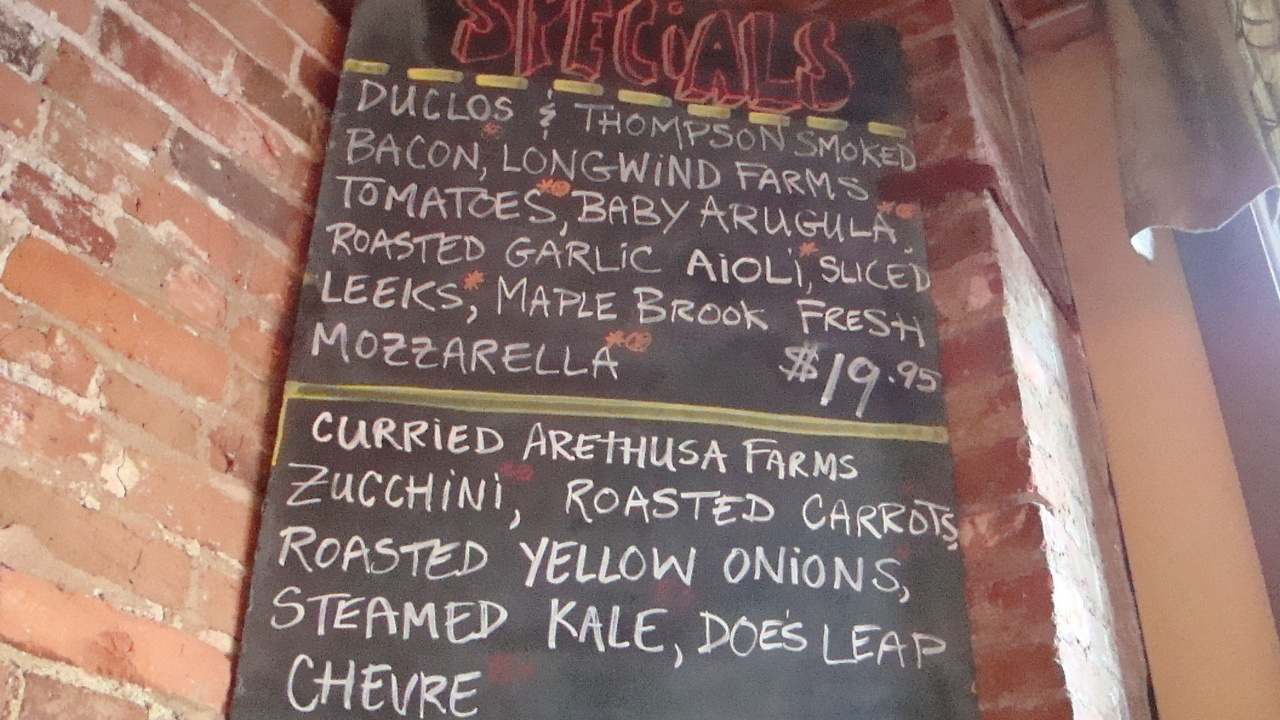 SPECiALS
DUCLOS & THOMPSON SMOKED
BACON, LONGWiND FARMS
TOMATOES, BABY ARUGULA,
ROASTED GARLiC AiOLi, SLiCED
LEEKS, MAPLE BROOK FRESH
MOZZARELLA $19.95
CURRiED ARETHUSA FARMS
ZUCCHiNi, ROASTED CARROTS,
ROASTED YELLOW ONiONS,
STEAMED KALE, DOE'S LEAP
CHEVRE